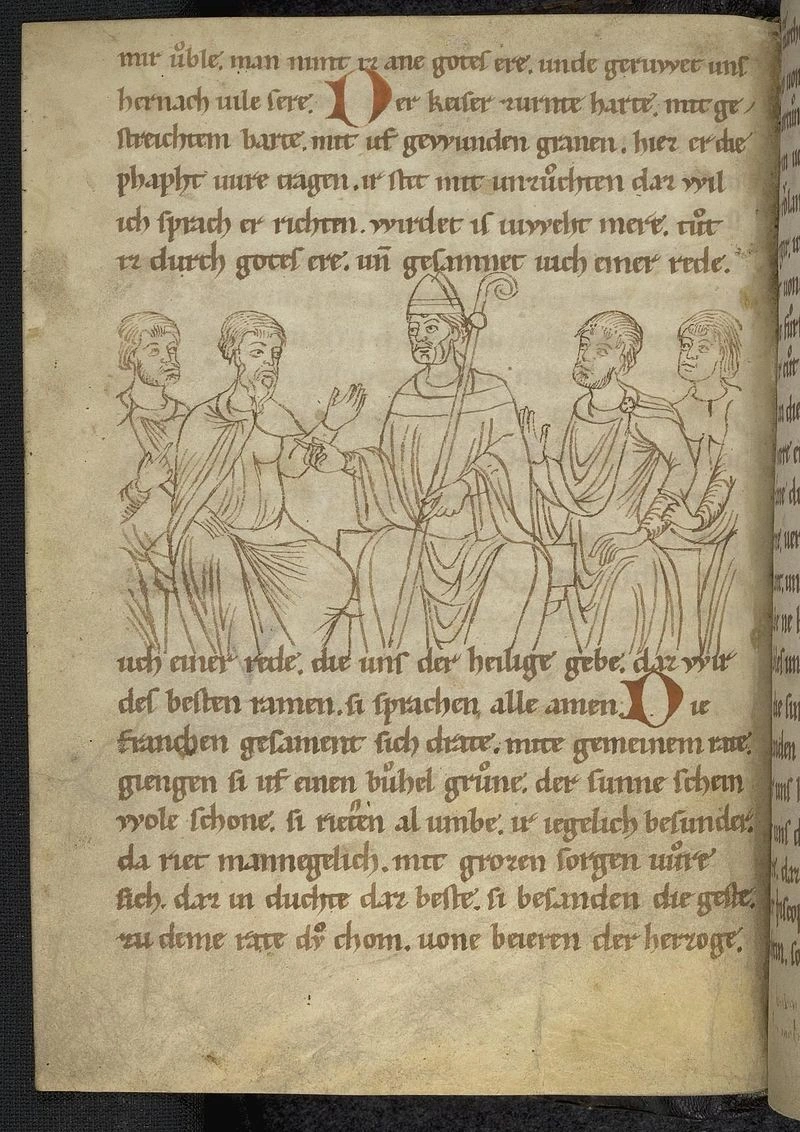 mir uͦble. man nimt iz ane goteſ ere. unde geruwet unſ
hernach uile ſere. Der keiſer zurnte harte. mit ge
ſtreichtem barte. mit uf gewunden granen. hiez er die
phapht uure tragen. ir ſtet mit unzuͦchten daz wil
ich ſprach er richten. wirdet iſ iuweht mere. tuͦt
iz durch goteſ ere. uñ geſamnet iuch einer rede.
uch einer rede. die unſ der heilige gebe. daz wir
deſ beſten ramen. ſi ſprachen alle amen. Die
franchen geſament ſich drate. mite gemeinem rate.
giengen ſi uf einen buͦhel gruͦne. der ſunne ſchein
wole ſchone. ſi rieten al umbe. ir iegelich beſunder.
da riet mannegelich. mit grozen ſorgen uuͦre
ſich. daz in duchte daz beſte. ſi beſanden die geſte.
zu deme rate do chom. uone beieren der herzoge.